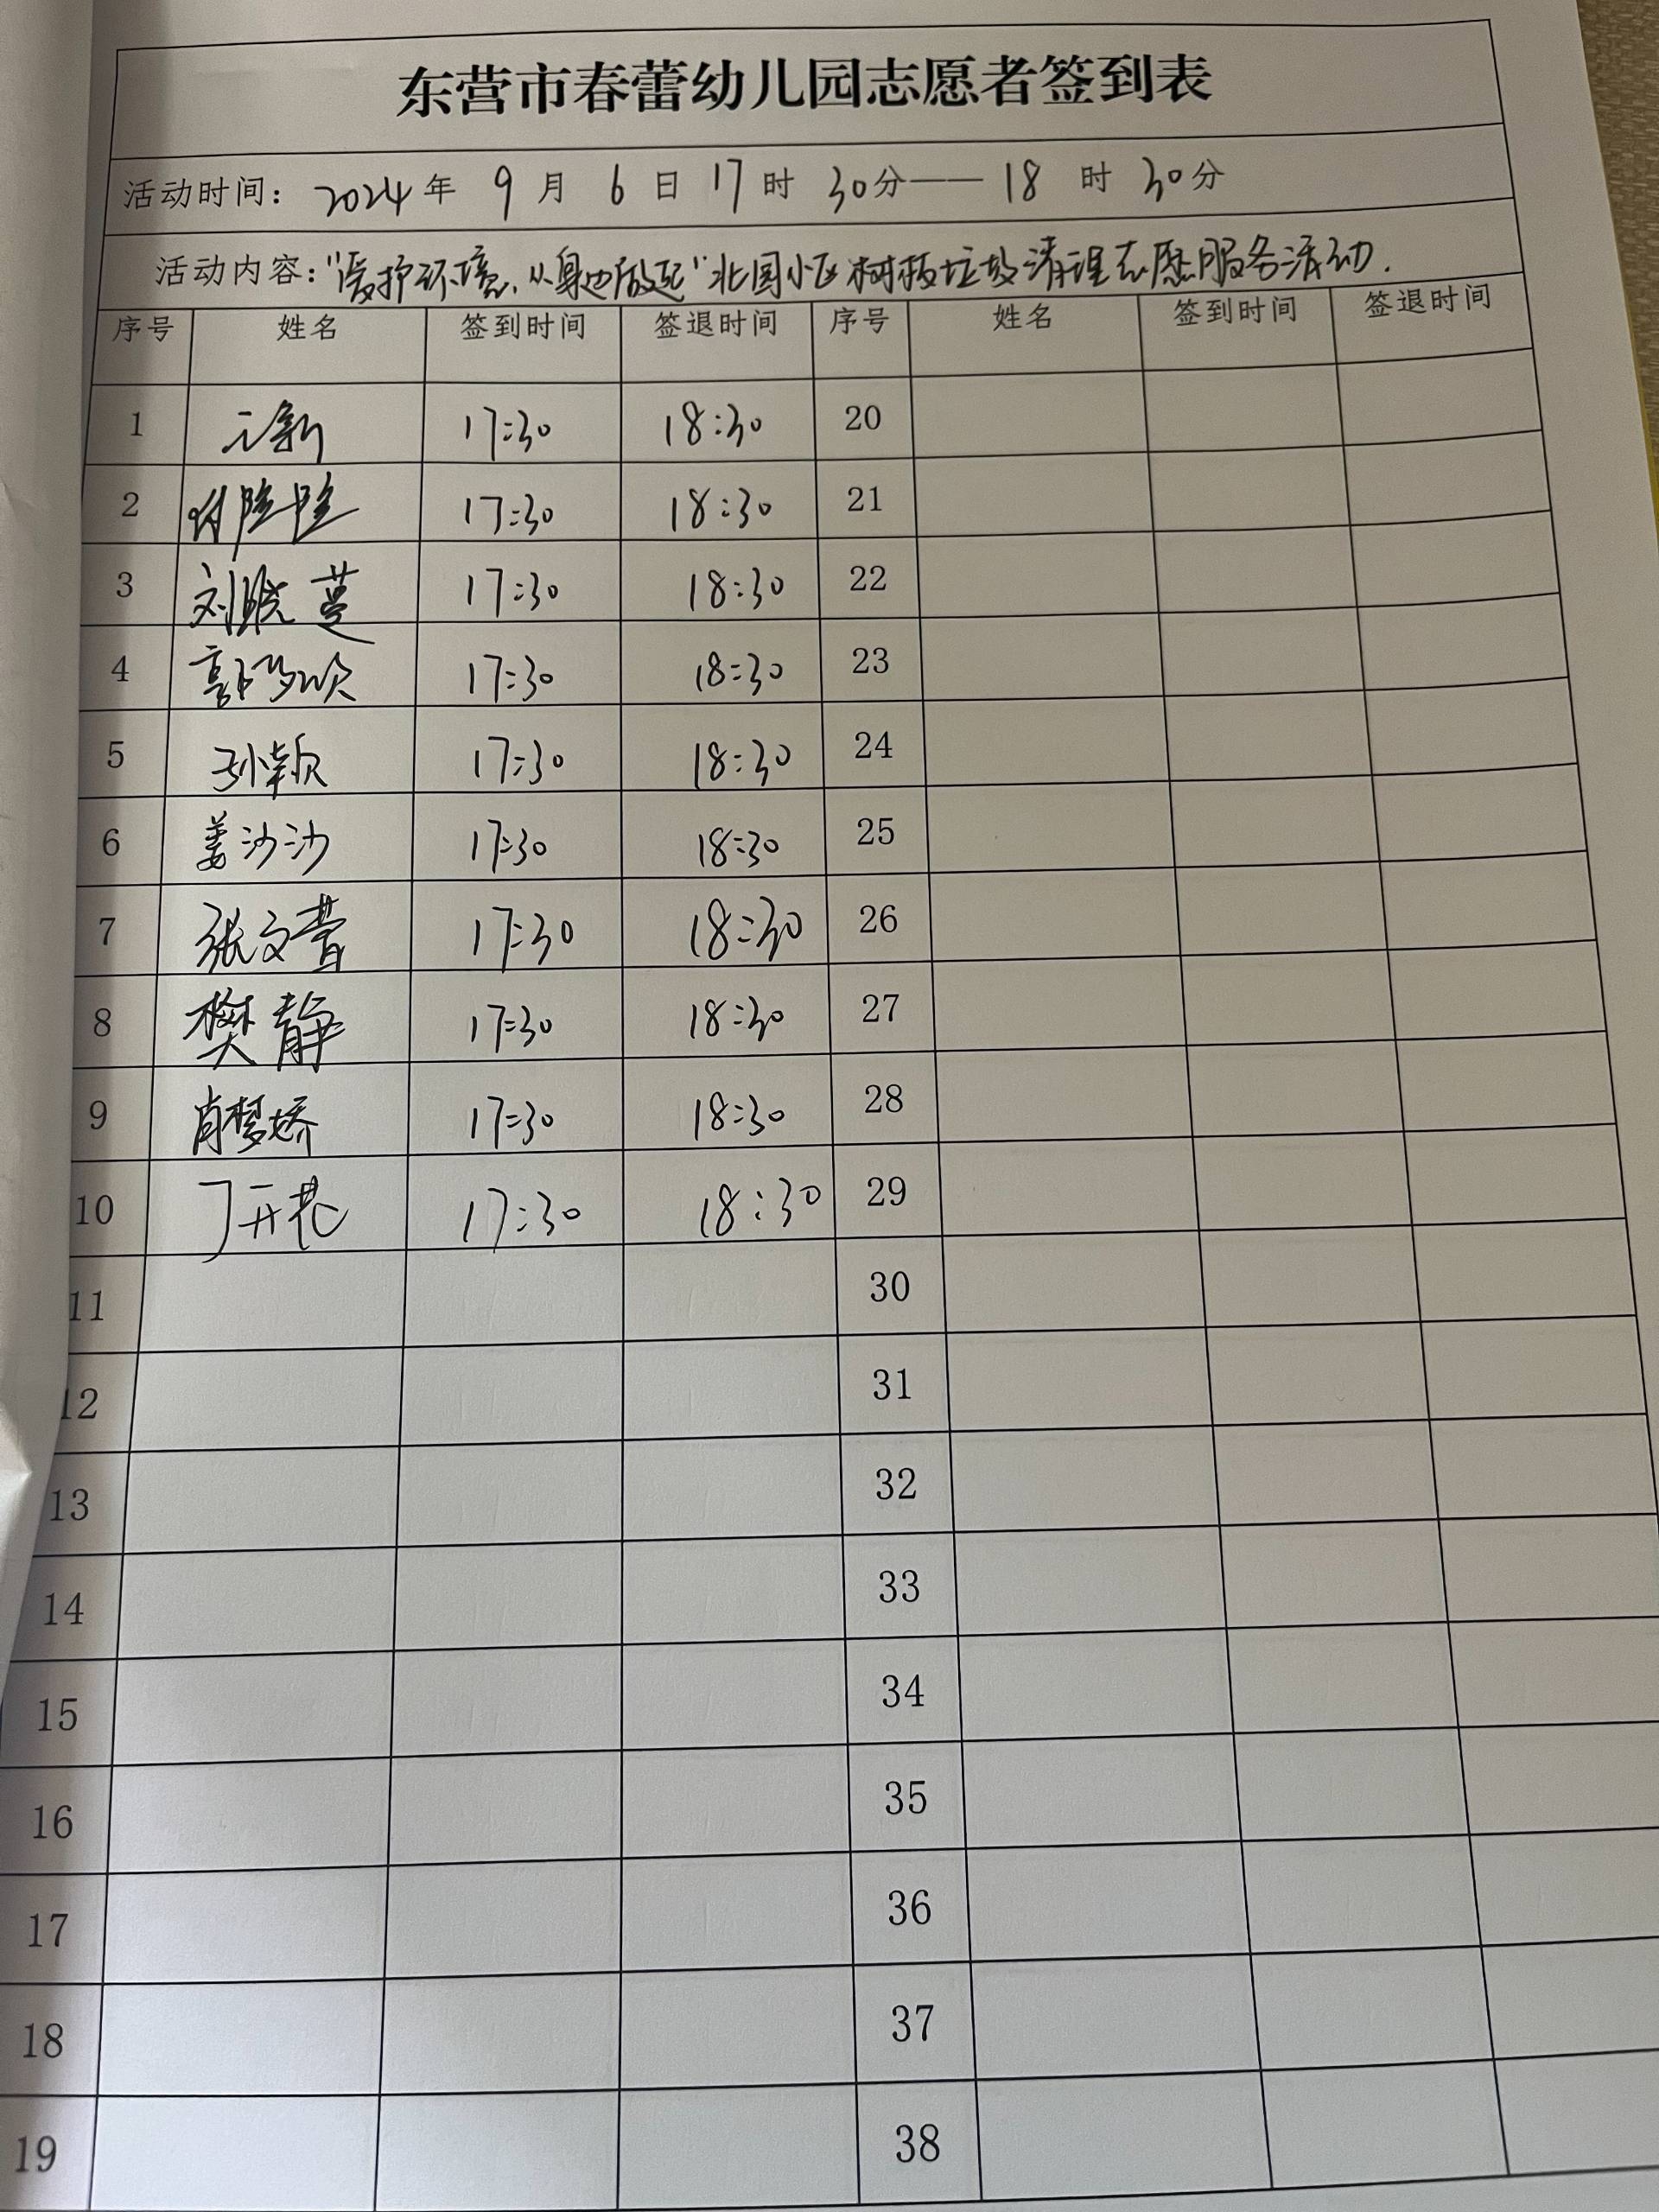 东营市春蕾幼儿园志愿者签到表
活动时间：2024年 9月 6日 17时 30分——18时 30分
活动内容："爱护环境，从身边做起"北国小区树枝垃圾清理志愿服务活动.
序号 姓名 签到时间 签退时间 序号 姓名 签到时间 签退时间
1 17:30 18:30 20
2 17:30 18:30 21
3 刘晓蔓 17:30 18:30 22
4 郭梦欣 17:30 18:30 23
5 孙颖 17:30 18:30 24
6 姜沙沙 17:30 18:30 25
7 张文营 17:30 18:30 26
8 樊静 17:30 18:30 27
9 肖梦娇 17:30 18:30 28
10 丁开花 17:30 18:30 29
11 30
12 31
13 32
14 33
15 34
16 35
17 36
18 37
19 38